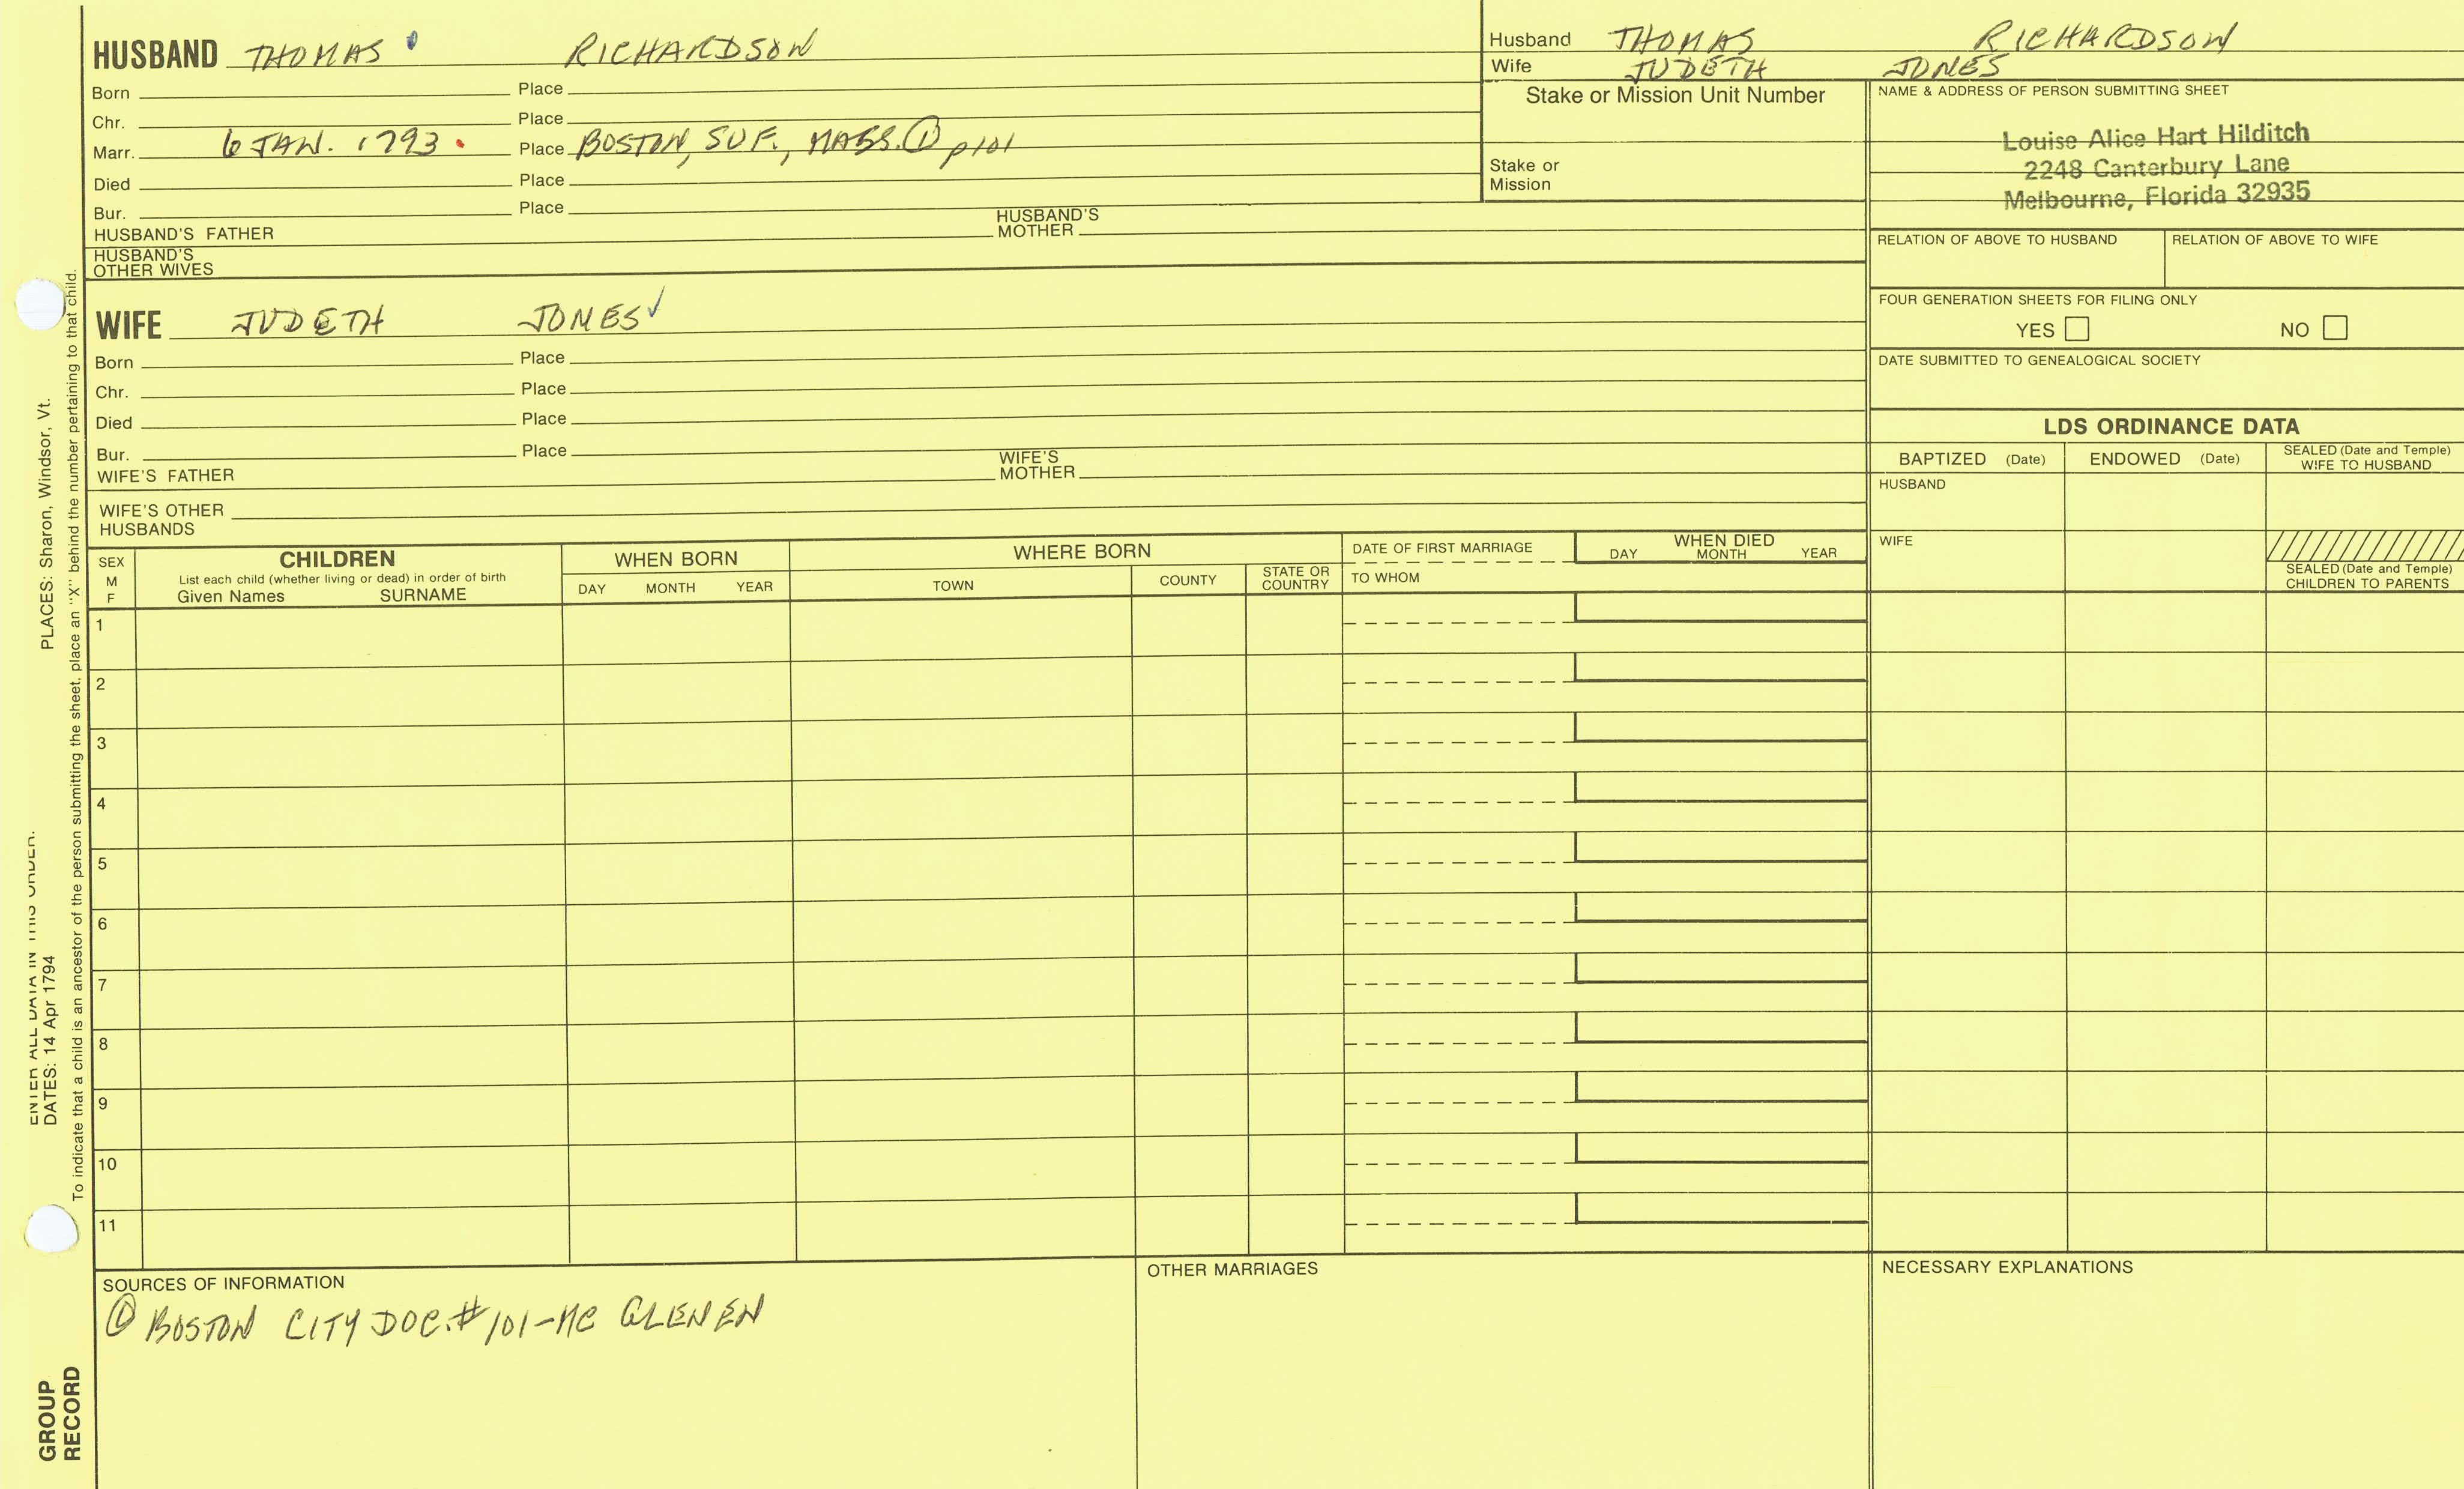 HUSBAND THOMAS RICHARDSON
Born Place
Chr. Place
Marr. 6 JAN. 1793. Place BOSTON, SUF., MASS. ① p101
Died Place
Bur. Place
HUSBAND'S FATHER HUSBAND'S MOTHER
HUSBAND'S OTHER WIVES
Husband THOMAS RICHARDSON
Wife JUDETH JONES
Stake or Mission Unit Number
Stake or Mission
NAME & ADDRESS OF PERSON SUBMITTING SHEET
Louise Alice Hart Hilditch
2248 Canterbury Lane
Melbourne, Florida 32935
RELATION OF ABOVE TO HUSBAND RELATION OF ABOVE TO WIFE
FOUR GENERATION SHEETS FOR FILING ONLY
YES NO
DATE SUBMITTED TO GENEALOGICAL SOCIETY
WIFE JUDETH JONES ✓
Born Place
Chr. Place
Died Place
Bur. Place
WIFE'S FATHER WIFE'S MOTHER
WIFE'S OTHER HUSBANDS
LDS ORDINANCE DATA
BAPTIZED (Date) ENDOWED (Date) SEALED (Date and Temple) WIFE TO HUSBAND
HUSBAND
WIFE
SEALED (Date and Temple) CHILDREN TO PARENTS
SEX M F
CHILDREN
List each child (whether living or dead) in order of birth
Given Names SURNAME
WHEN BORN
DAY MONTH YEAR
WHERE BORN
TOWN COUNTY STATE OR COUNTRY
DATE OF FIRST MARRIAGE
TO WHOM
WHEN DIED
DAY MONTH YEAR
1
2
3
4
5
6
7
8
9
10
11
SOURCES OF INFORMATION
① BOSTON CITY DOC. #101-MC GLENEN
OTHER MARRIAGES
NECESSARY EXPLANATIONS
ENTER ALL DATA IN THIS ORDER.
DATES: 14 Apr 1794 PLACES: Sharon, Windsor, Vt.
To indicate that a child is an ancestor of the person submitting the sheet, place an "X" behind the number pertaining to that child.
GROUP
RECORD